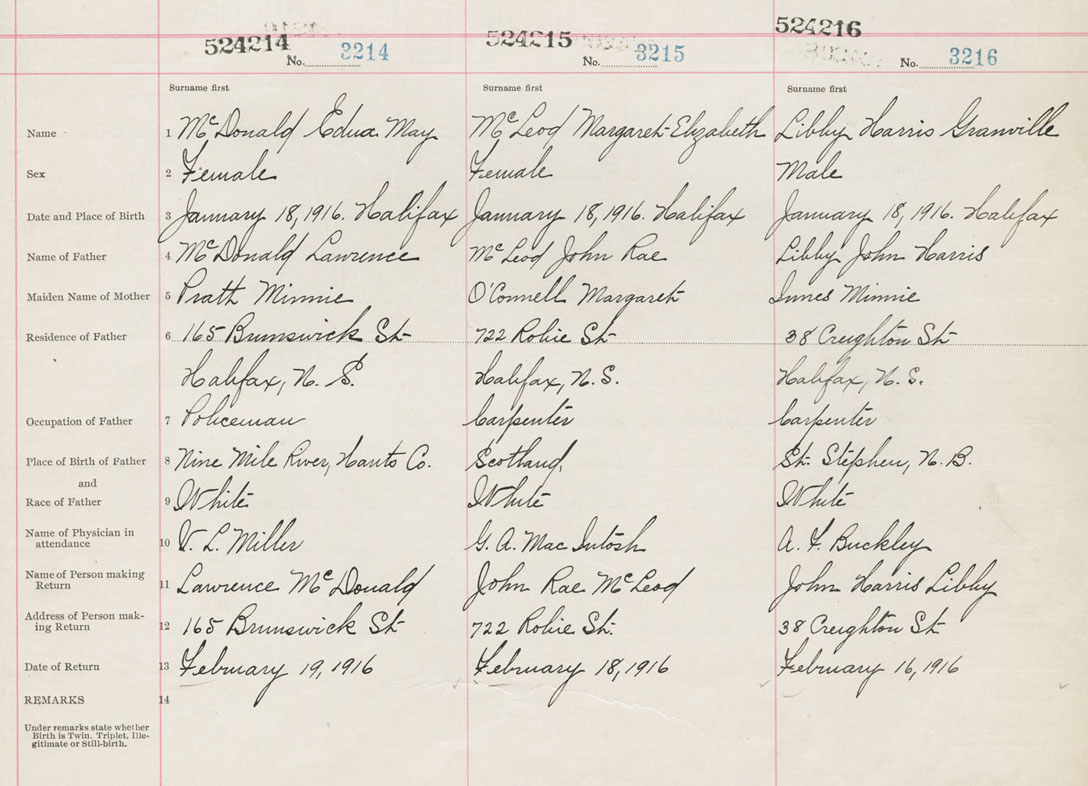 524214 524215 524216
No. 3214 No. 3215 No. 3216
Surname first Surname first Surname first
Name 1 McDonald Edna May McLeod Margaret Elizabeth Libby Harris Granville
Sex 2 Female Female Male
Date and Place of Birth 3 January 18, 1916. Halifax January 18, 1916. Halifax January 18, 1916. Halifax
Name of Father 4 McDonald Lawrence McLeod John Rae Libby John Harris
Maiden Name of Mother 5 Pratt Minnie O'Connell Margaret Innes Minnie
Residence of Father 6 165 Brunswick St 722 Robie St 38 Creighton St
Halifax, N. S. Halifax, N. S. Halifax, N. S.
Occupation of Father 7 Policeman Carpenter Carpenter
Place of Birth of Father 8 Nine Mile River, Hants Co. Scotland, St. Stephen, N. B.
and
Race of Father 9 White White White
Name of Physician in
attendance 10 V. L. Miller G. A. MacIntosh A. F. Buckley
Name of Person making
Return 11 Lawrence McDonald John Rae McLeod John Harris Libby
Address of Person mak-
ing Return 12 165 Brunswick St 722 Robie St. 38 Creighton St
Date of Return 13 February 19, 1916 February 18, 1916 February 16, 1916
REMARKS 14
Under remarks state whether
Birth is Twin, Triplet, Ille-
gitimate or Still-birth.